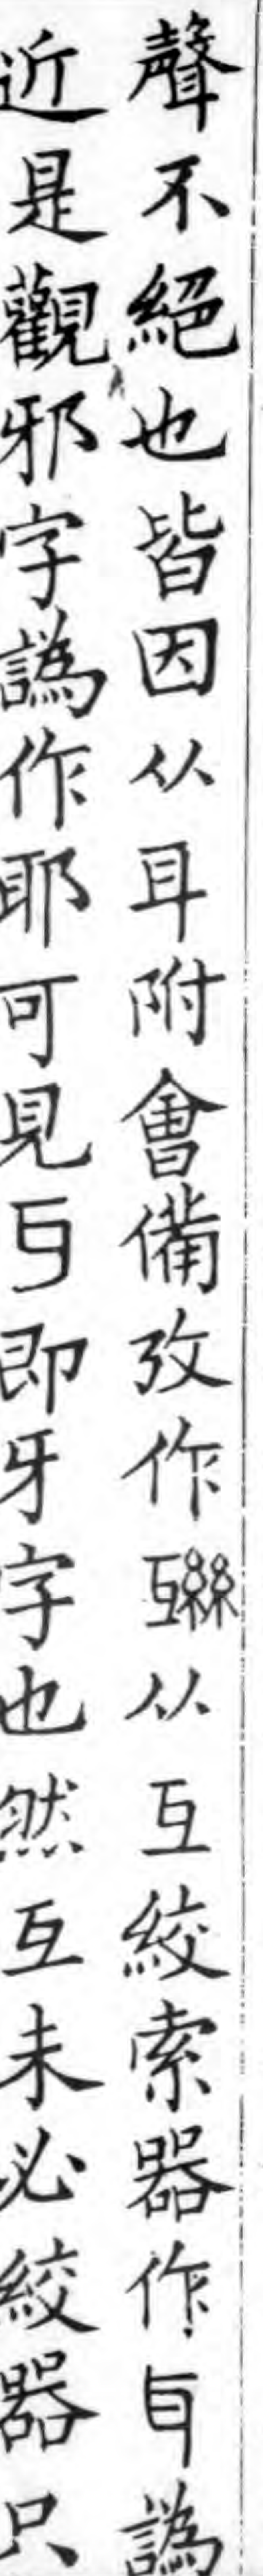 聲不絕也皆因从耳附會備攷作从互絞索器作譌
近是觀邪字譌作耶可見即牙字也然互未必絞器只